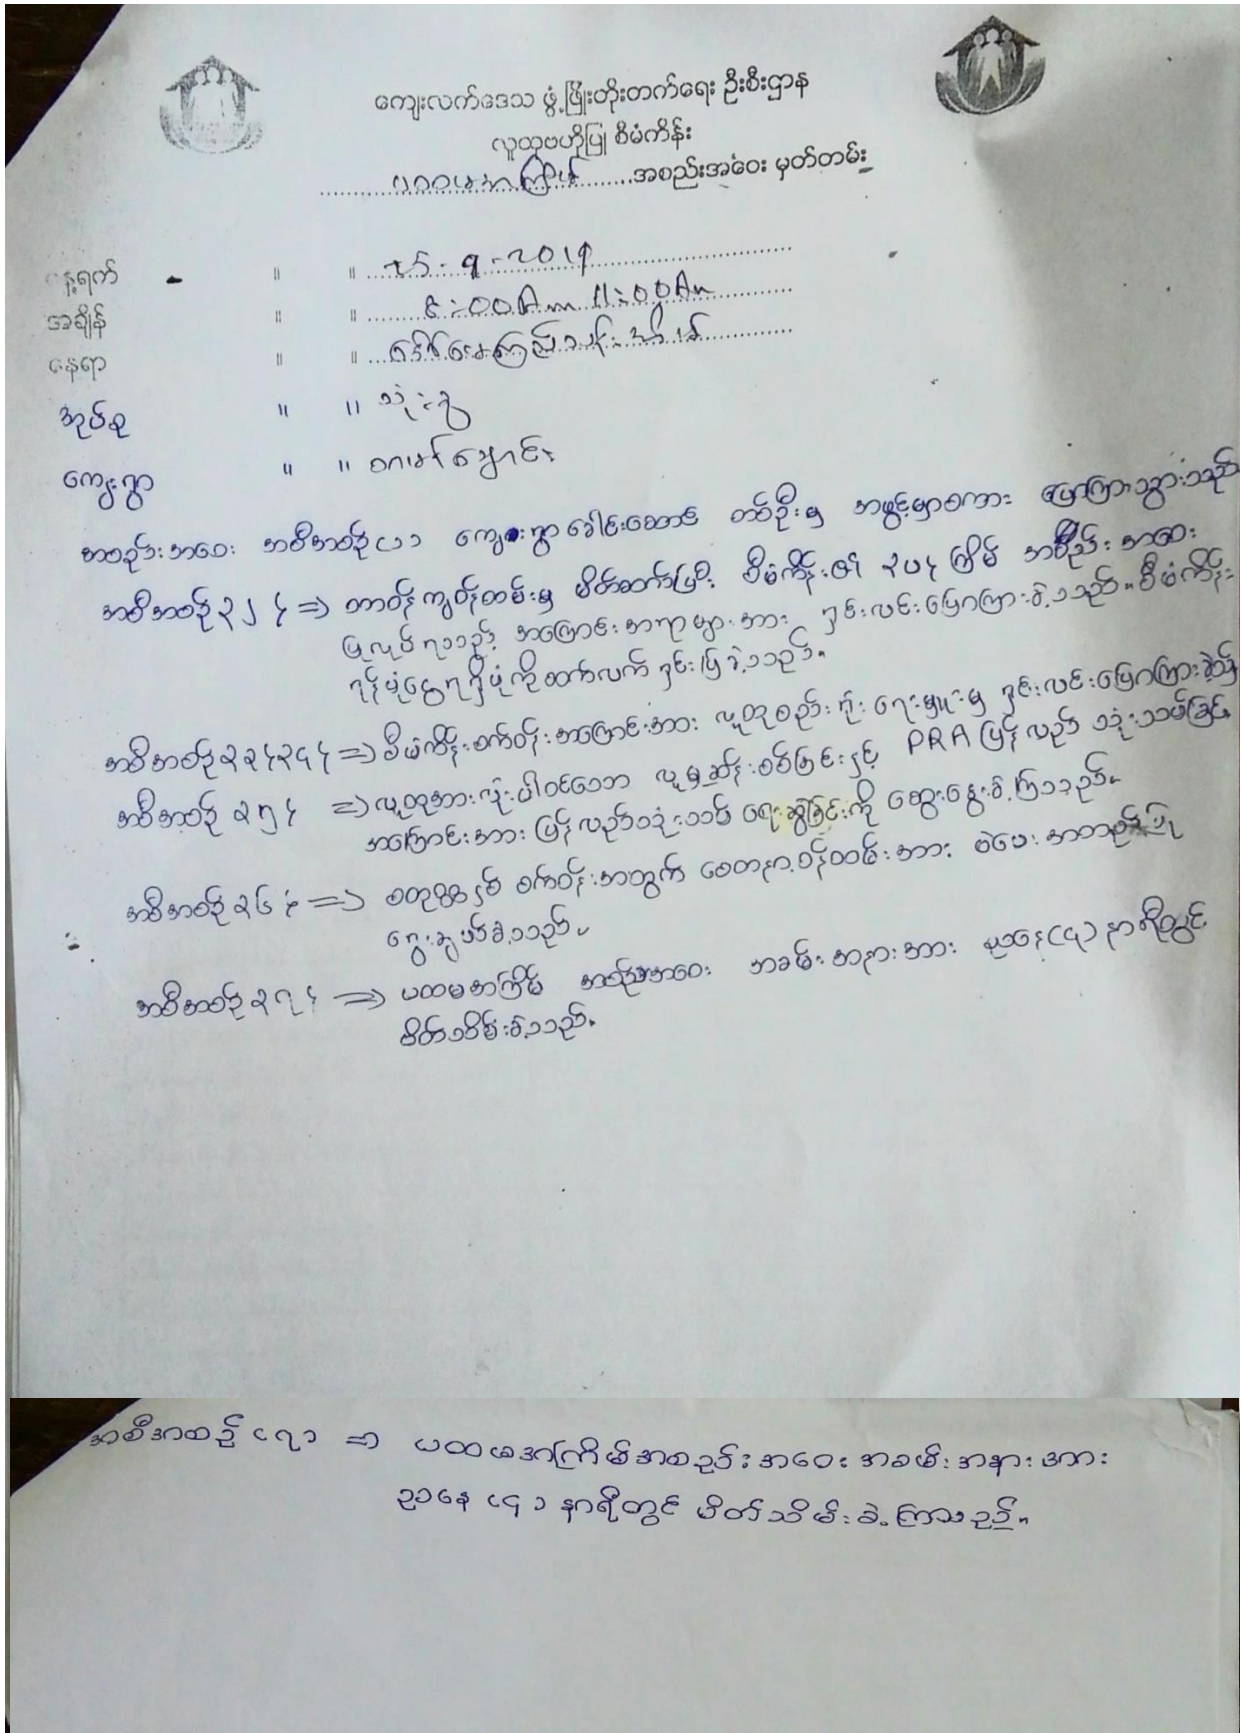 ကျေးလက်ဒေသ ဖွံ့ဖြိုးတိုးတက်ရေး ဦးစီးဌာန
လူထုဗဟိုပြု စီမံကိန်း
ပထမအကြိမ် အစည်းအဝေး မှတ်တမ်း
နေ့ရက် " "
အချိန် " " 8:00Am 11:00Am
နေရာ " "
အုပ်စု " " သုံးခွ
ကျေးရွာ " "
အစည်းအဝေး အစီအစဉ်(၁) ကျေးရွာခေါင်းဆောင် တစ်ဦးမှ အဖွင့်မှာစကား ပြောကြားသွားသည်
အစီအစဉ်(၂) => တာဝန်ကျဝန်ထမ်းမှ မိတ်ဆက်ပြီး စီမံကိန်း၏ ပ ကြိမ် အစည်းအဝေး
ပြုလုပ်ရသည့် အကြောင်းအရာများအား ရှင်းလင်းပြောကြားခဲ့သည်။ စီမံကိန်း
ရန်ပုံငွေရရှိပုံကိုဆက်လက် ရှင်းပြခဲ့သည်။
အစီအစဉ်(၃)(၄) => စီမံကိန်းစက်ဝန်းအကြောင်းအား လူထုစည်းရုံးရေးမှူးမှ ရှင်းလင်းပြောကြားခဲ့သည်
အစီအစဉ်(၅) => လူထုအားလုံးပါဝင်သော လူမှုဆန်းစစ်ခြင်းနှင့် PRA ပြန်လည်သုံးသပ်ခြင်း
အကြောင်းအား ပြန်လည်သုံးသပ် ရေးဆွဲခြင်းကို ဆွေးနွေးခဲ့ကြသည်။
အစီအစဉ်(၆) => စတုတ္ထနှစ် စက်ဝန်းအတွက် စေတနာ့ဝန်ထမ်းအား မဲပေး
ရွေးချယ်ခဲ့သည်။
အစီအစဉ်(၇) => ပထမအကြိမ် အစည်းအဝေး အခမ်းအနားအား ညနေ(၄)နာရီတွင်
ပိတ်သိမ်းခဲ့သည်။
အစီအစဉ်(၇) => ပထမအကြိမ်အစည်းအဝေး အခမ်းအနားအား
ညနေ(၄)နာရီတွင် ပိတ်သိမ်းခဲ့ကြသည်။